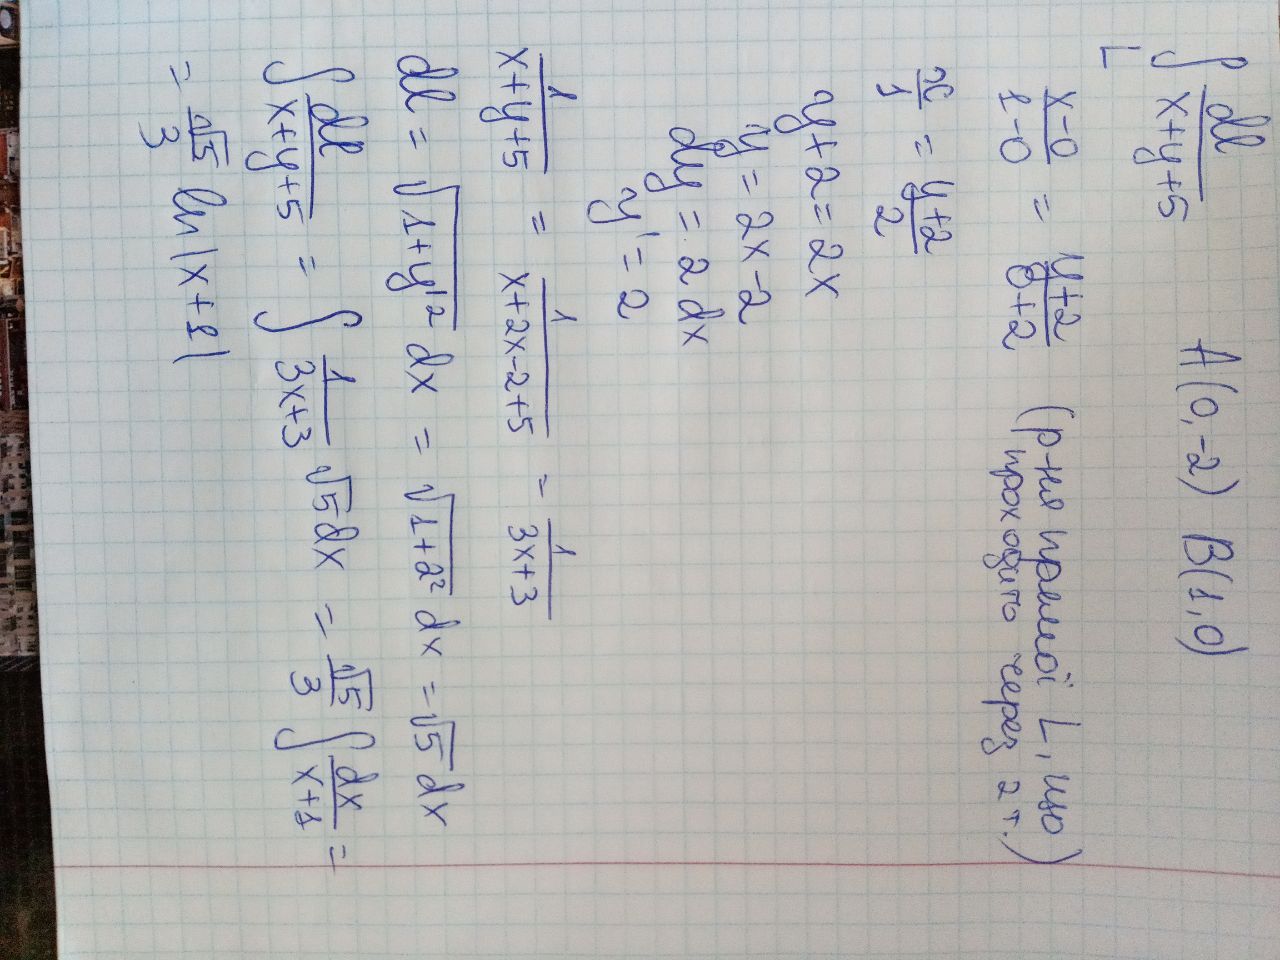 ∫_L dl/(x+y+5) A(0,-2) B(1,0)
(x-0)/(1-0) = (y+2)/(0+2) (р-ня прямої L, що
проходить через 2 т.)
x/1 = (y+2)/2
y+2=2x
y=2x-2
dy = 2 dx
y' = 2
1/(x+y+5) = 1/(x+2x-2+5) = 1/(3x+3)
dl = √(1+y'²) dx = √(1+2²) dx = √5 dx
∫ dl/(x+y+5) = ∫ 1/(3x+3) √5 dx = √5/3 ∫ dx/(x+1) =
= √5/3 ln|x+1|